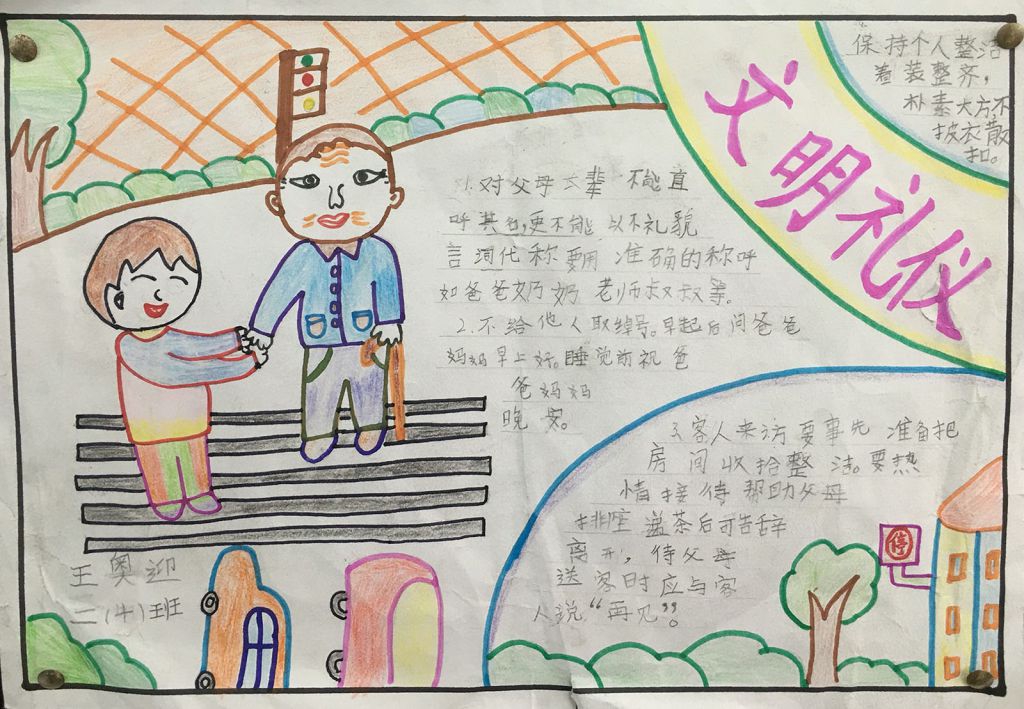 文明礼仪
保持个人整洁
着装整齐，
朴素大方，不
披衣散
扣。
1.对父母长辈不能直
呼其名，更不能以不礼貌
言词代称要用准确的称呼
如爸爸奶奶老师叔叔等。
2.不给他人取绰号。早起后问爸爸
妈妈早上好。睡觉前祝爸
爸妈妈
晚安。
3.客人来访要事先准备把
房间收拾整洁。要热
情接待帮助父母
排座 温茶后可告辞
离开，待父母
送客时应与客
人说“再见”。
停
王奥迎
二（牛）班